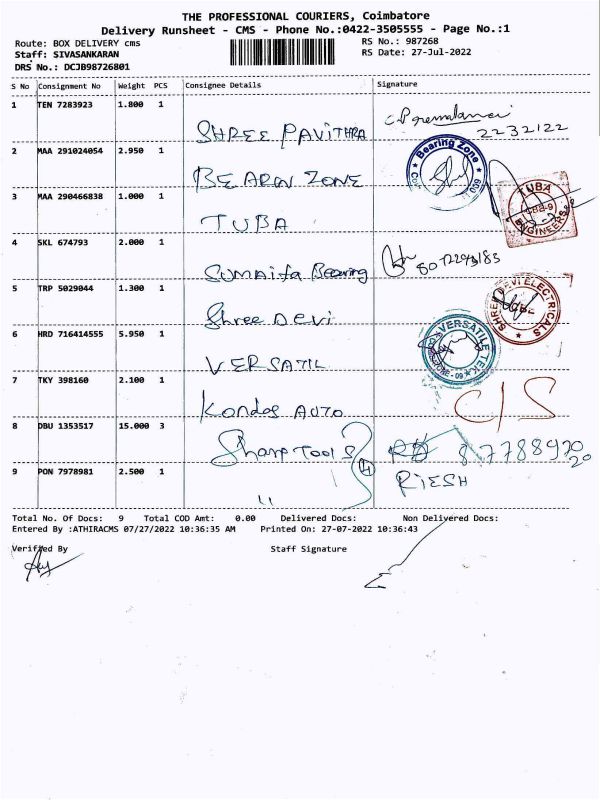 THE PROFESSIONAL COURIERS, Coimbatore
Delivery Runsheet - CMS - Phone No.:0422-3505555 - Page No.:1
Route: BOX DELIVERY cms RS No.: 987268
Staff: SIVASANKARAN RS Date: 27-Jul-2022
DRS No.: DCJB98726801
S No Consignment No Weight PCS Consignee Details Signature
1 TEN 7283923 1.800 1
SHREE PAVITHRA 2232122
2 MAA 291024054 2.950 1 Bearing Zone
BEARIN ZONE
3 MAA 290466838 1.000 1 TUBA
CBB-9
ENGINEERS
TUBA
4 SKL 674793 2.000 1
Sumaita Bearing
5 TRP 5029044 1.300 1 SHREE DEVI ELECTRICALS
Shree Devi
6 HRD 716414555 5.950 1 VERSATILE TEK
VERSATIL
7 TKY 398160 2.100 1
Kondas AUTO C/S
8 DBU 1353517 15.000 3
Sharp Tools
9 PON 7978981 2.500 1 4
RIESH
"
Total No. Of Docs: 9 Total COD Amt: 0.00 Delivered Docs: Non Delivered Docs:
Entered By :ATHIRACMS 07/27/2022 10:36:35 AM Printed On: 27-07-2022 10:36:43
Verified By Staff Signature